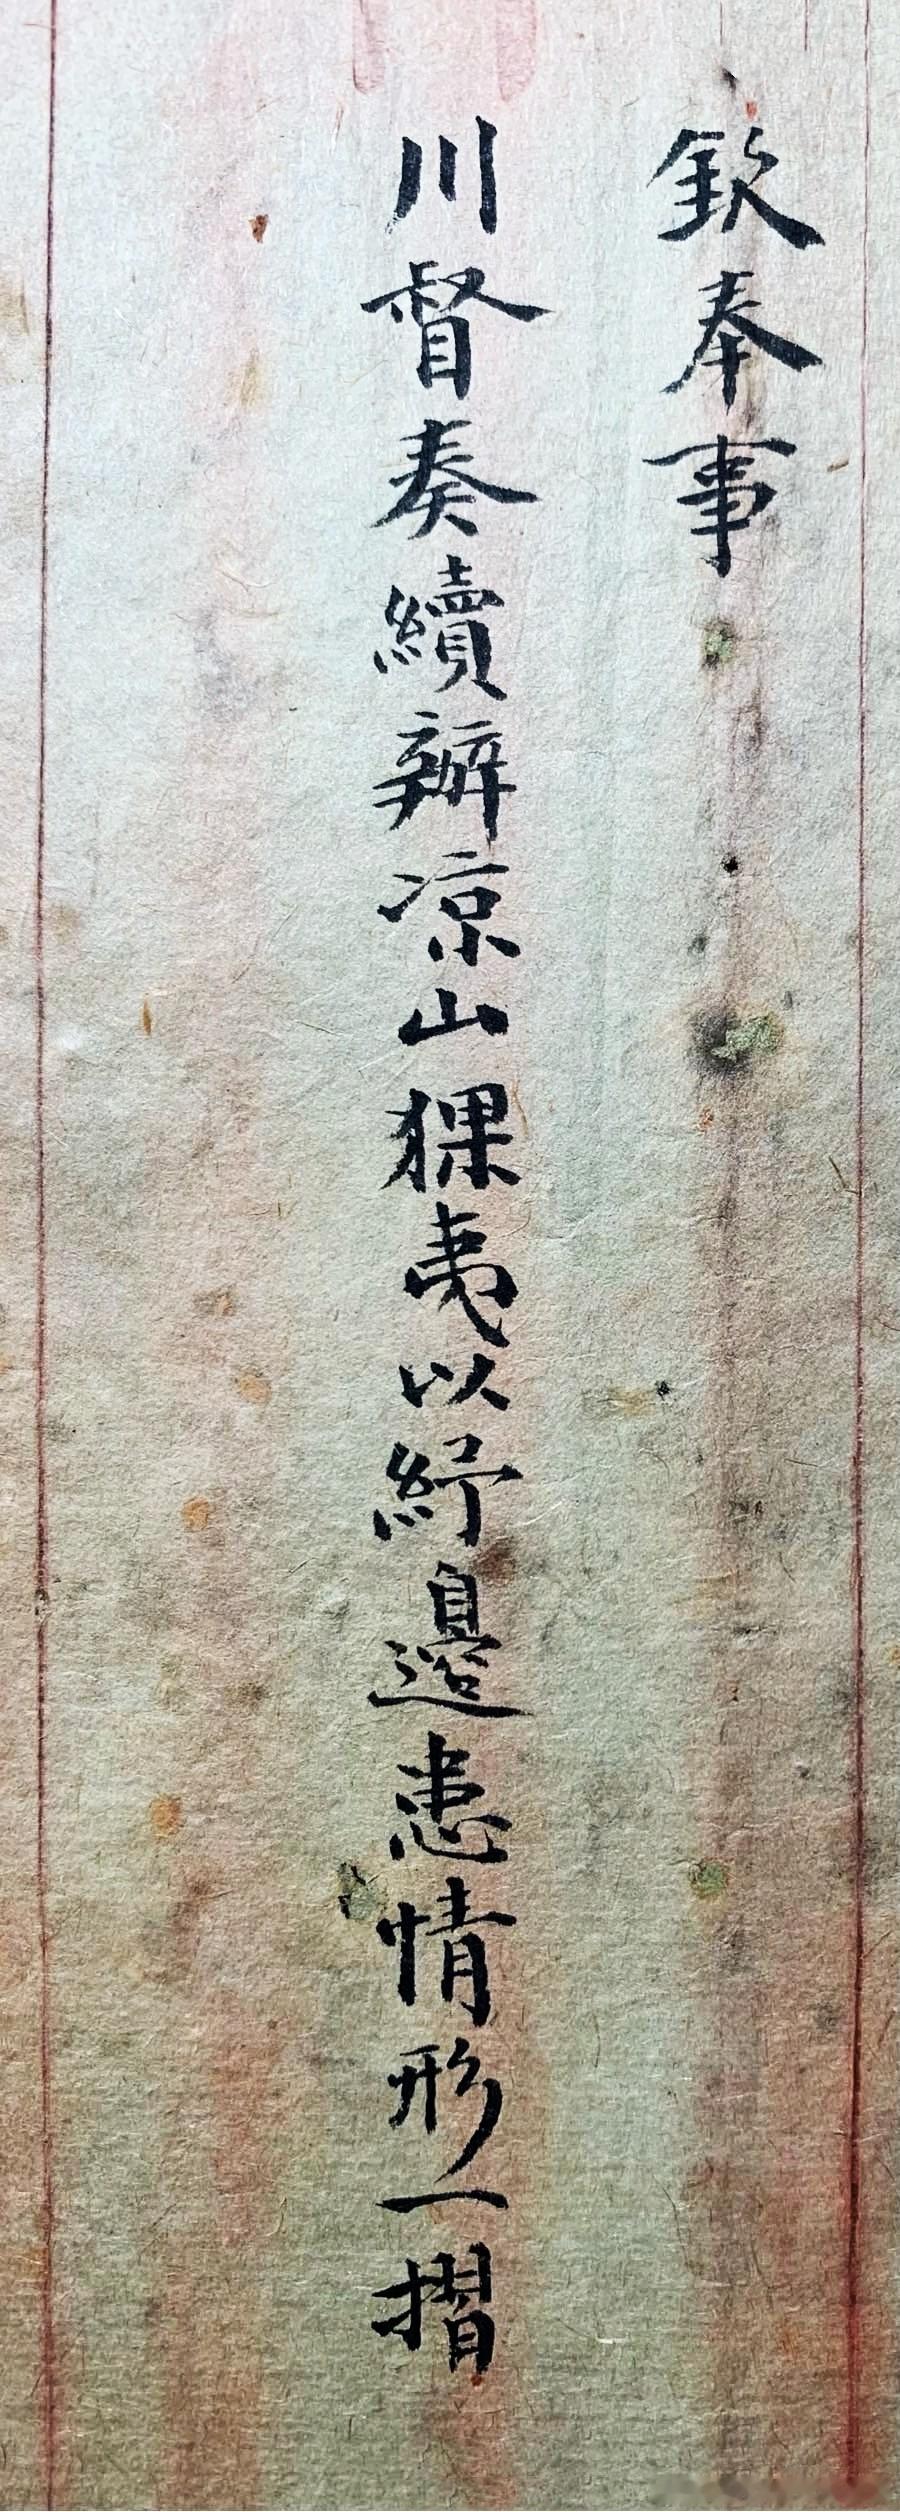 欽奉事
川督奏續辦凉山猓夷以紓邊患情形一摺